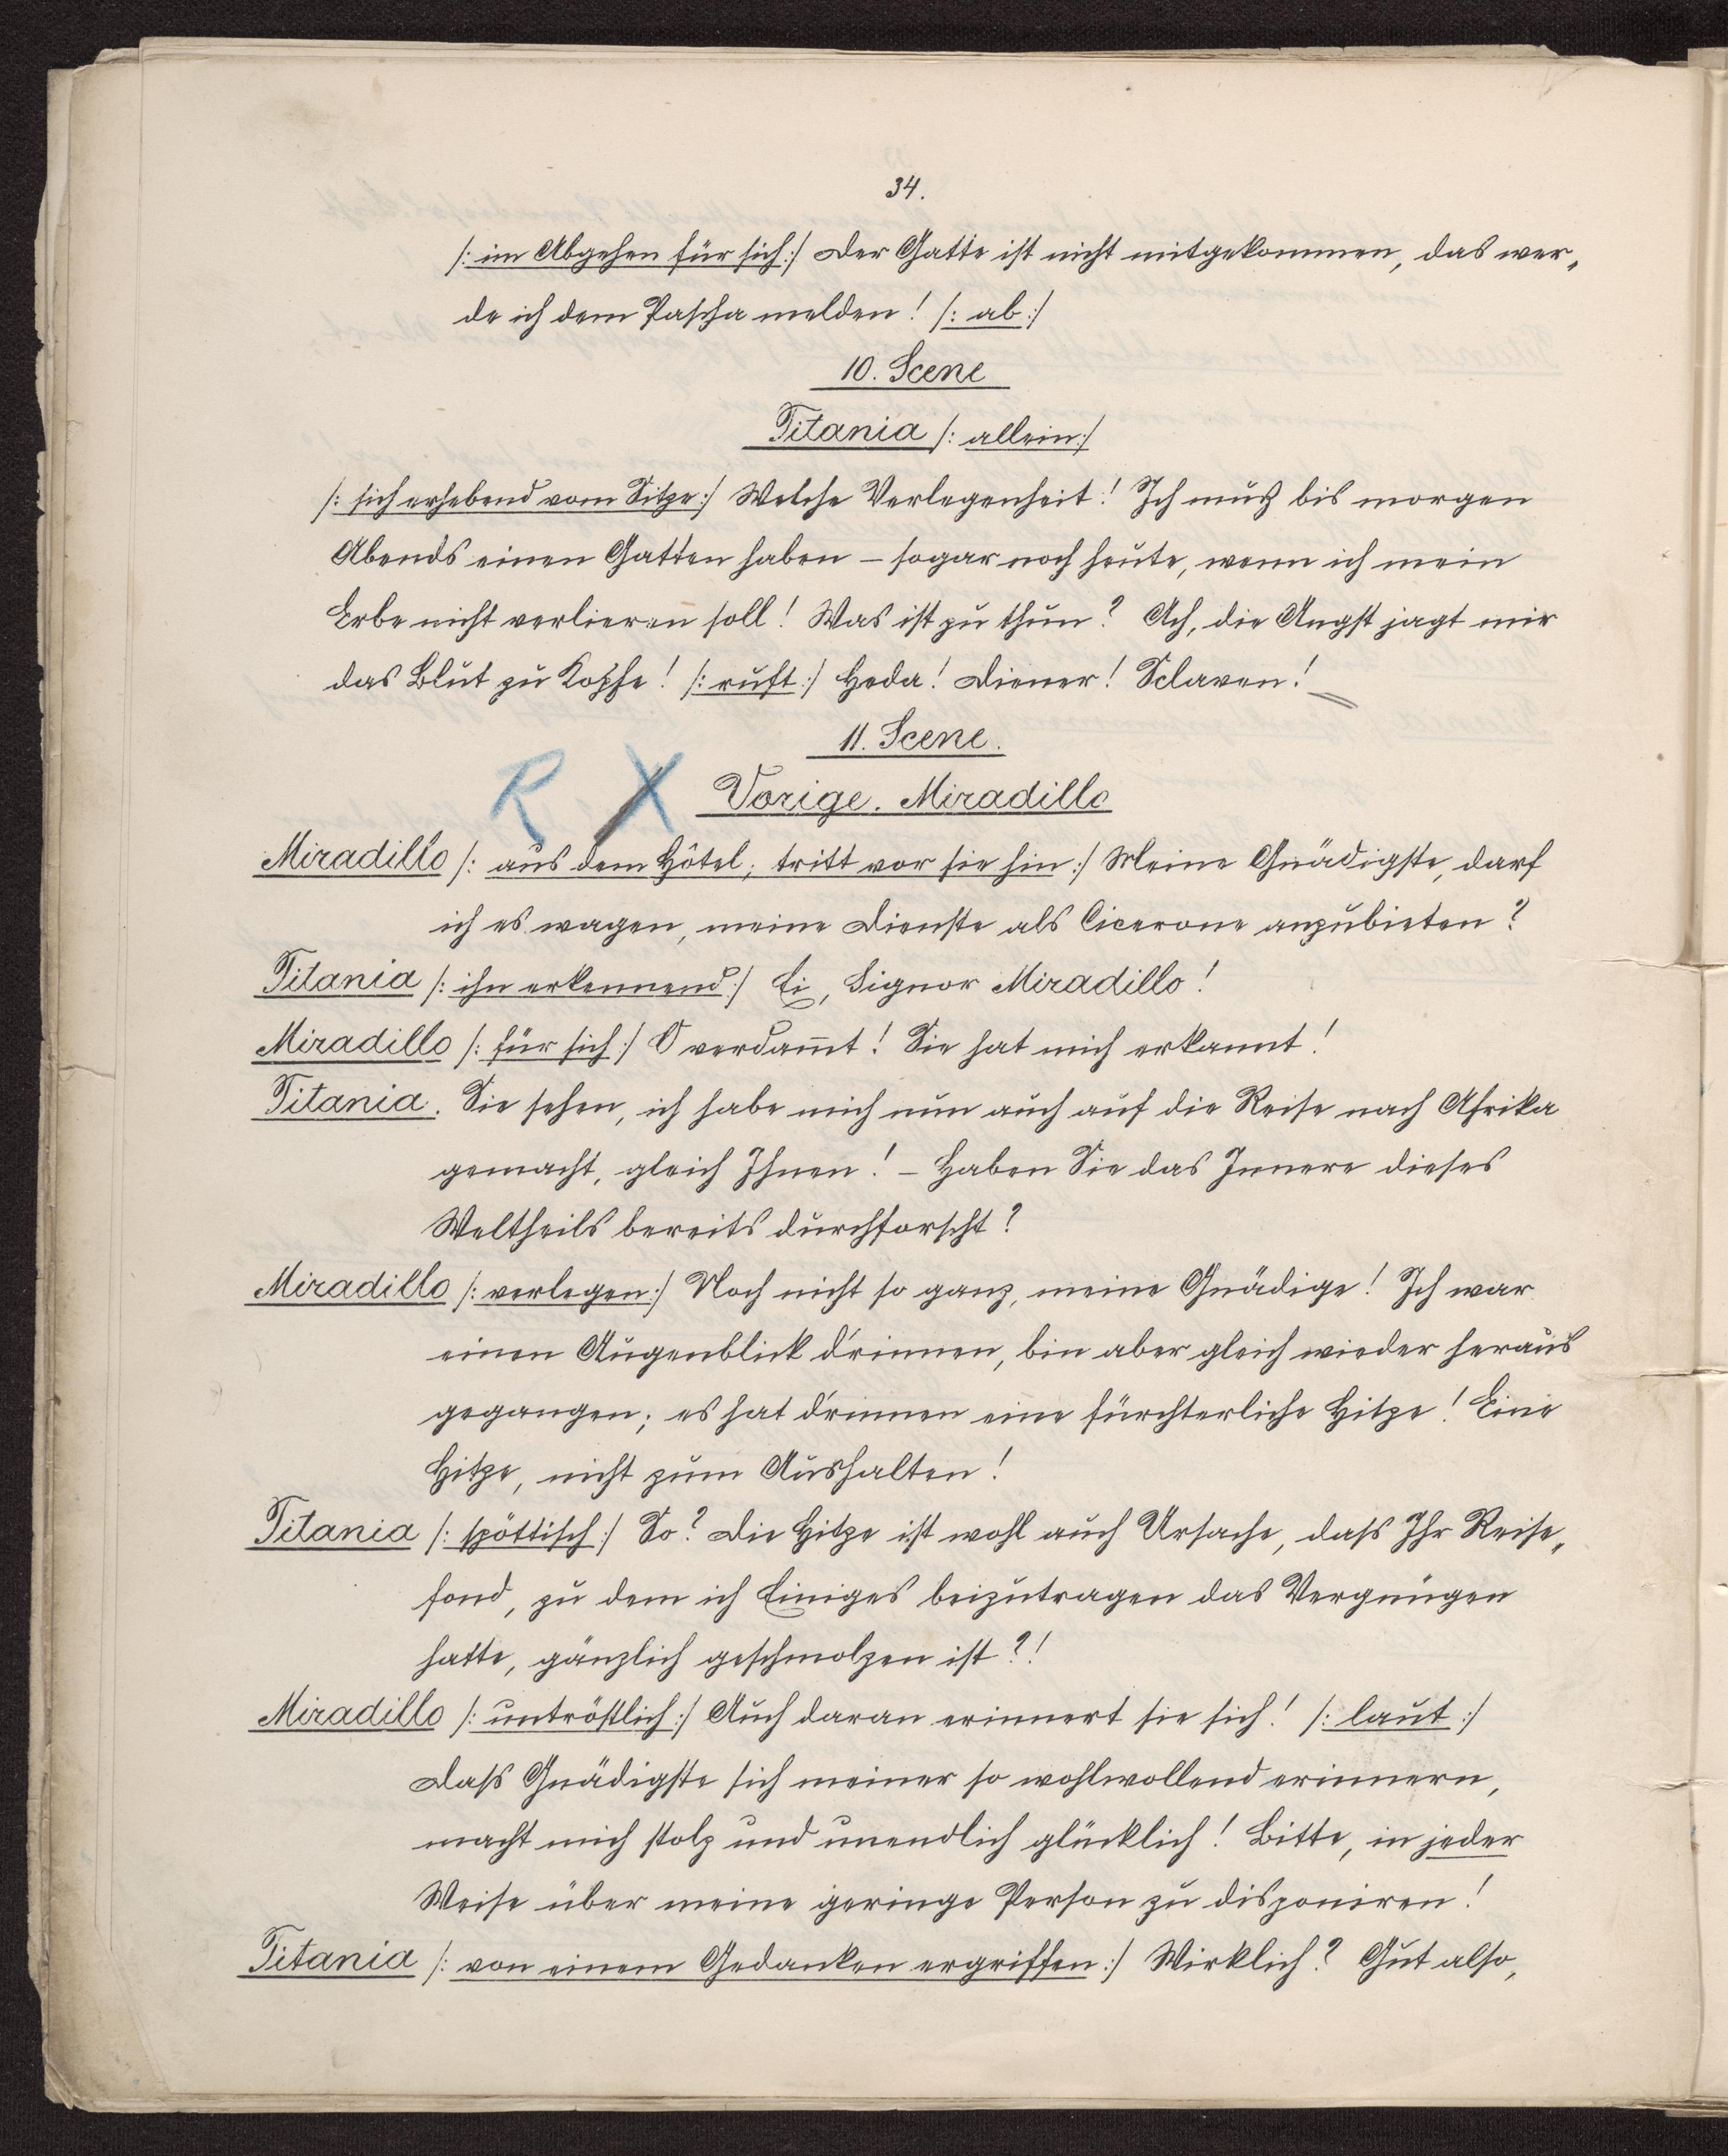 34.
/: im Abgehen für sich :/ Der Gatte ist nicht mitgekommen, das wer„
de ich dem Pascha melden! /: ab :/
10. Scene
Titania /: allein :/
/: sich erhebend vom Sitze :/ Welche Verlegenheit! Ich muß bis morgen
Abends einen Gatten haben – sogar noch heute, wenn ich mein
Erbe nicht verlieren soll! Was ist zu thun? Ach, die Angst jagt mir
das Blut zu Kopfe! /: ruft :/ Heda! Diener! Sclaven!
11. Scene.
R X Vorige. Miradillo
Miradillo /: aus dem Hôtel; tritt vor sie hin :/ Meine Gnädigste, darf
ich es wagen, meine Dienste als Cicerone anzubieten?
Titania /: ihn erkennend :/ Ei, Signor Miradillo!
Miradillo /: für sich :/ O verdam̄t! Sie hat mich erkannt!
Titania. Sie sehen, ich habe mich nun auch auf die Reise nach Afrika
gemacht, gleich Ihnen! – Haben Sie das Innere dieses
Weltheils bereits durchforscht?
Miradillo /: verlegen :/ Noch nicht so ganz, meine Gnädige! Ich war
einen Augenblick d'rinnen, bin aber gleich wieder heraus
gegangen; es hat d'rinnen eine fürchterliche Hitze! Eine
Hitze, nicht zum Aushalten!
Titania /: spöttisch :/ So? Die Hitze ist wohl auch Ursache, dass Ihr Reise„
fond, zu dem ich Einiges beizutragen das Vergnügen
hatte, gänzlich geschmolzen ist?!
Miradillo /: untröstlich :/ Auch daran erinnert sie sich! /: laut :/
Dass Gnädigste sich meiner so wohlwollend erinnern,
macht mich stolz und unendlich glücklich! Bitte, in jeder
Weise über meine geringe Person zu disponiren!
Titania /: von einem Gedanken ergriffen :/ Wirklich? Gut also,